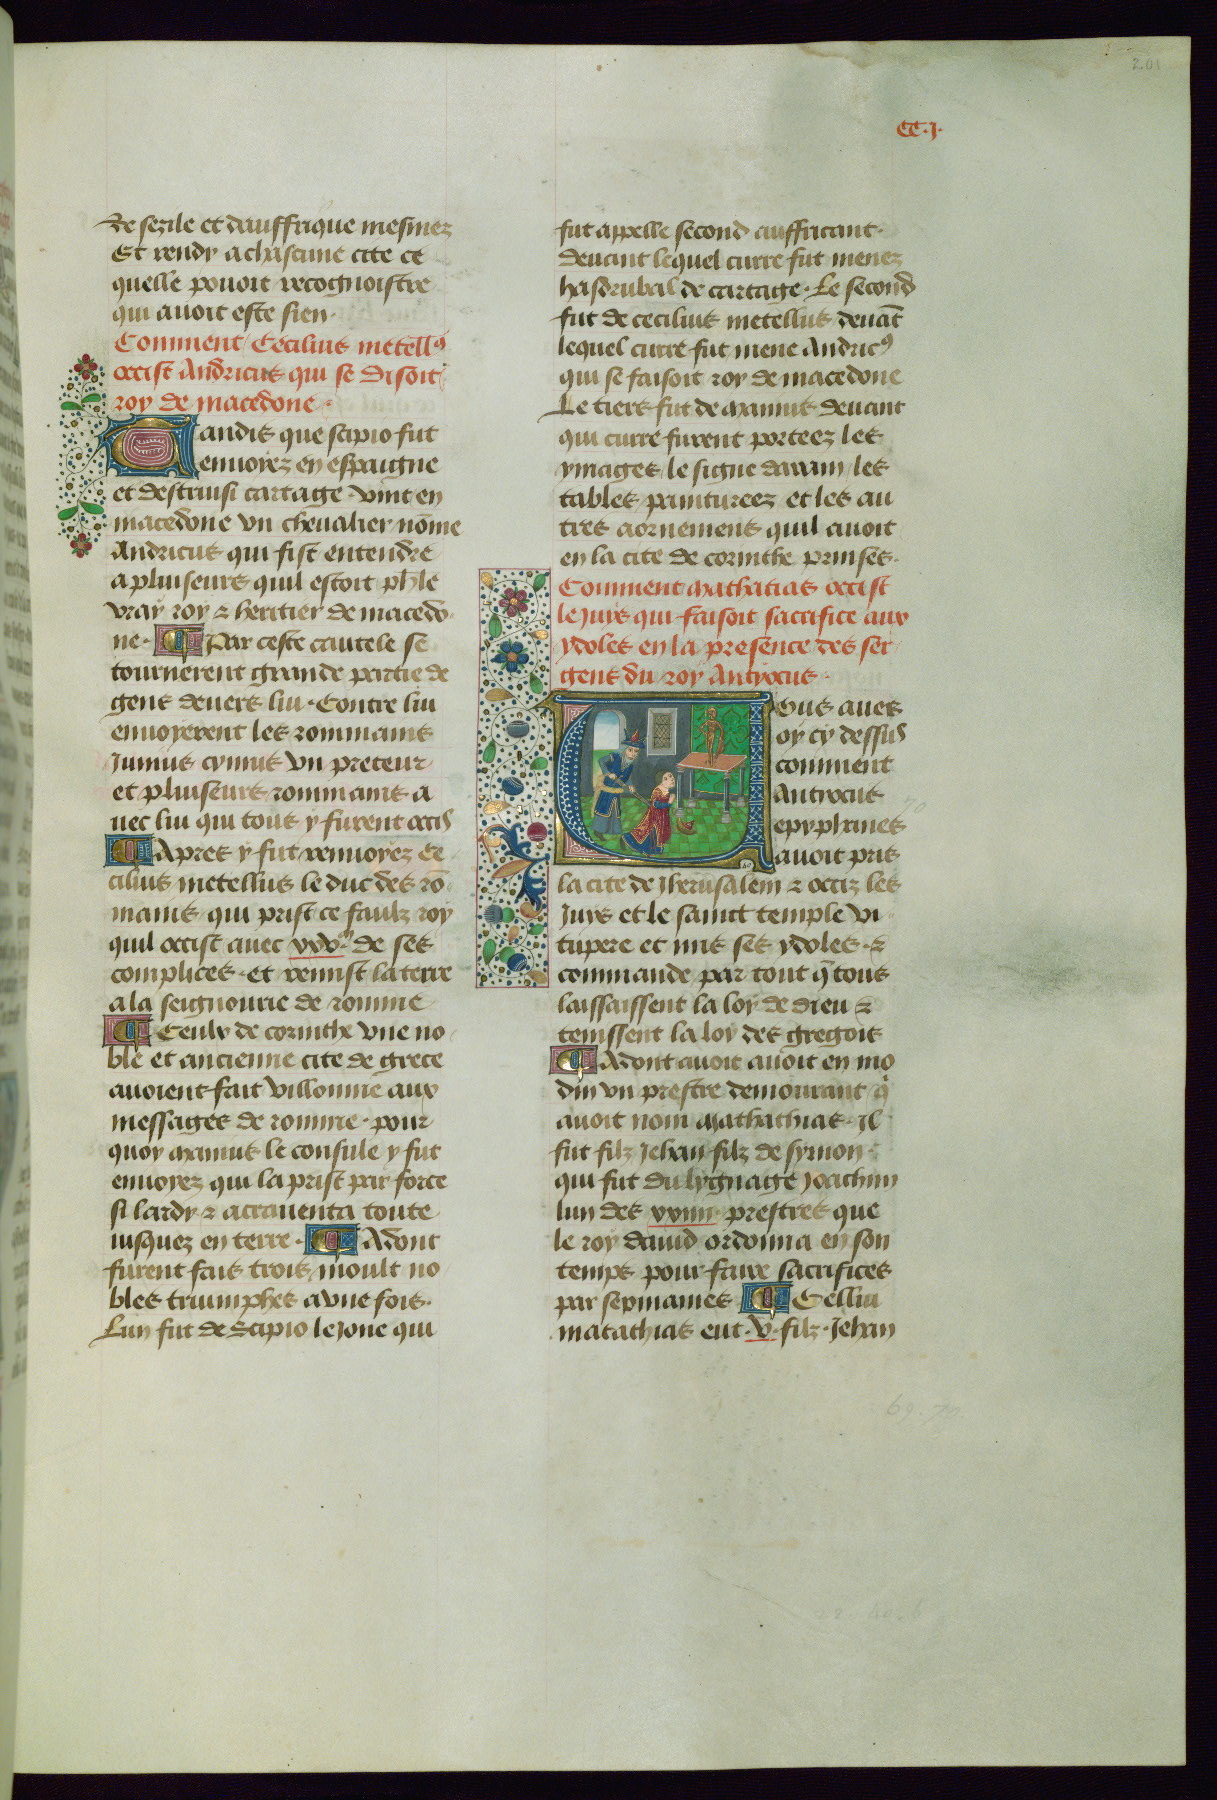 201
CC.j.
de sezile et dauffrique mesmes
Et rendy a chascune cite ce
quelle pouoit recognoistre
qui auoit este sien.
Comment Cecilius metellꝰ
occist Andricus qui se disoit
roy de macedone.
Tandis que scipio fut
enuoyez en espaigne
et destruisi cartage vint en
macedone vn cheualier nōme
Andricus qui fist entendre
a pluiseurs quil estoit ph̄le
vray roy ⁊ heritier de macedo
ne. Par ceste cautele se
tournerent grande partie de
gens deuers lui. Contre lui
enuoyerent les rommains
Junius cynnus vn preteur
et pluiseurs rommains a
uec lui qui tous y furent occis
Apres y fut renuoyez Ce
cilius metellus le duc des rō
mains qui prist ce faulz roy
quil occist auec xxvm de ses
complices. et remist la terre
a la seignourie de romme
Ceulx de corinthe vne no
ble et ancienne cite de grece
auoient fait villonnie aux
messages de romme. pour
quoy maxnius le consule y fut
enuoyez qui la prist par force
si lardy ⁊ acrauenta toute
iusquez en terre. Adont
furent fais trois moult no
bles triumphes a vne fois.
Lun fut de Scipio le jone qui
fut appelle second auffricant.
deuant lequel curre fut menez
hasdrubal de cartage. Le second
fut de cecilius metellus deuāt
lequel curre fut mene Andricꝰ
qui se faisoit roy de macedone
Le tiers fut de manius deuant
qui curre furent porteez les
ymages le signe darain les
tables painturees et les au
tres aornemens quil auoit
en la cite de corinthe prinses.
Comment mathatias occist
le juys qui faisoit sacrifice aux
ydoles en la presence des ser
gens du roy Antyocus.
Vous aues
oy cy dessus
comment
Antiocus
epyphanes
auoit pris
la cite de Jherusalem ⁊ occiz les
Juys et le saint temple vi
tupere et mis ses ydoles. ⁊
commande par tout q̄ tous
laissaissent la loy de dieu ⁊
tenissent la loy des gregois
Adont auoit auoit en mo
din vn prestre demourant q̇
auoit nom mathathias. Jl
fut filz Jehan filz de symon
qui fut du lygnage Joachim
lun des xxiiii prestres que
le roy dauid ordonna en son
temps pour faire sacrifices
par sepmaines. Cellui
matathias eut .v. filz. Jehan